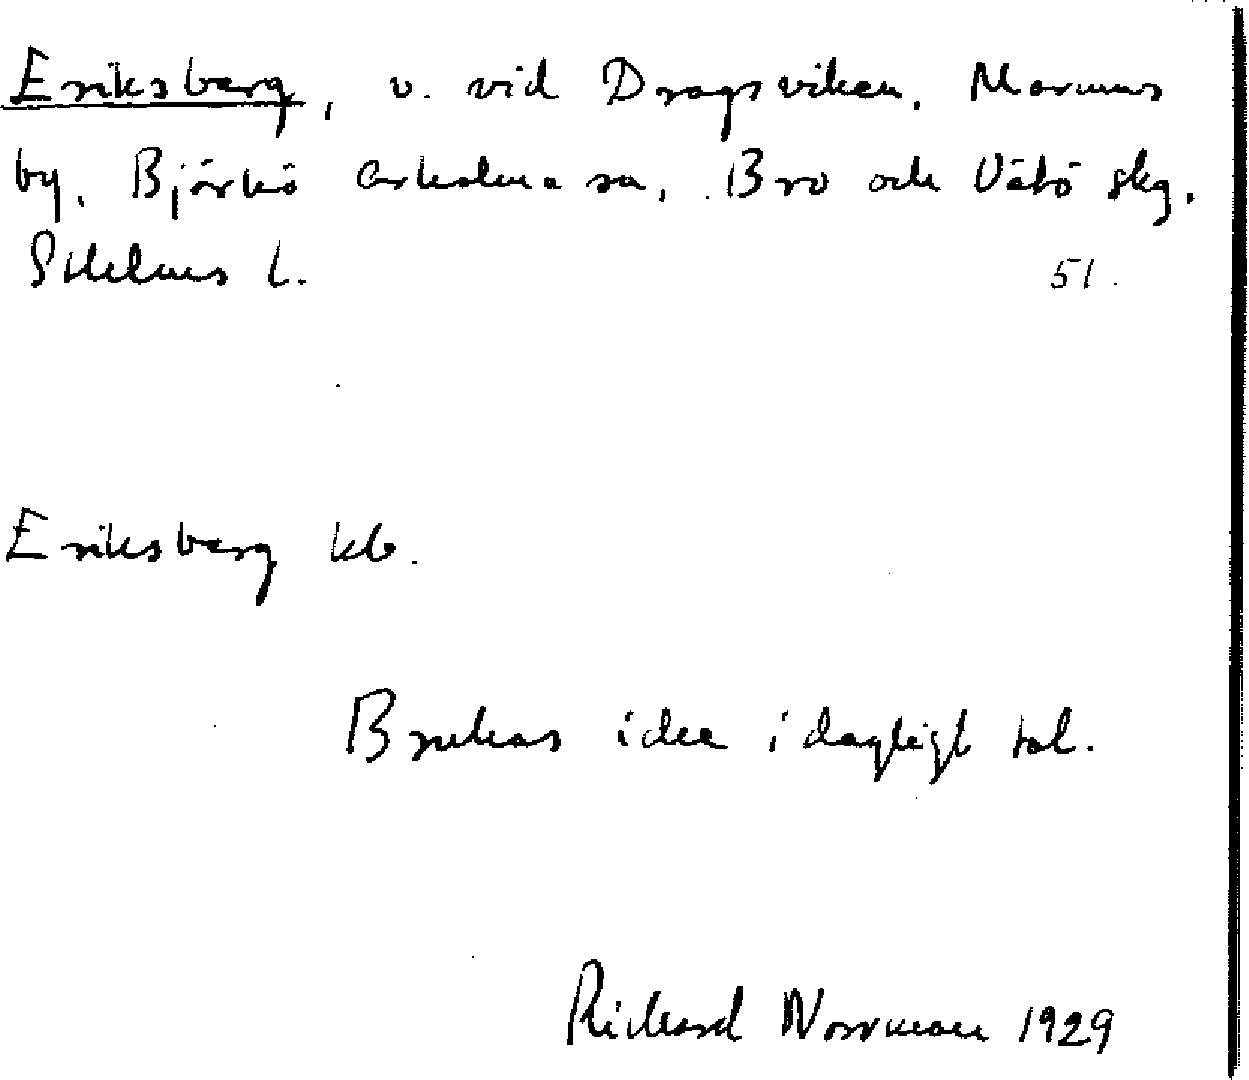 Eriksberg, v. vid Dragsviken, Marums
by, Björkö Arholma sn, Bro och Vätö skg,
Sthlms l. 51.
Eriksberg kb.
Brukas icke i dagligt tal.
Rickard Norrman 1929